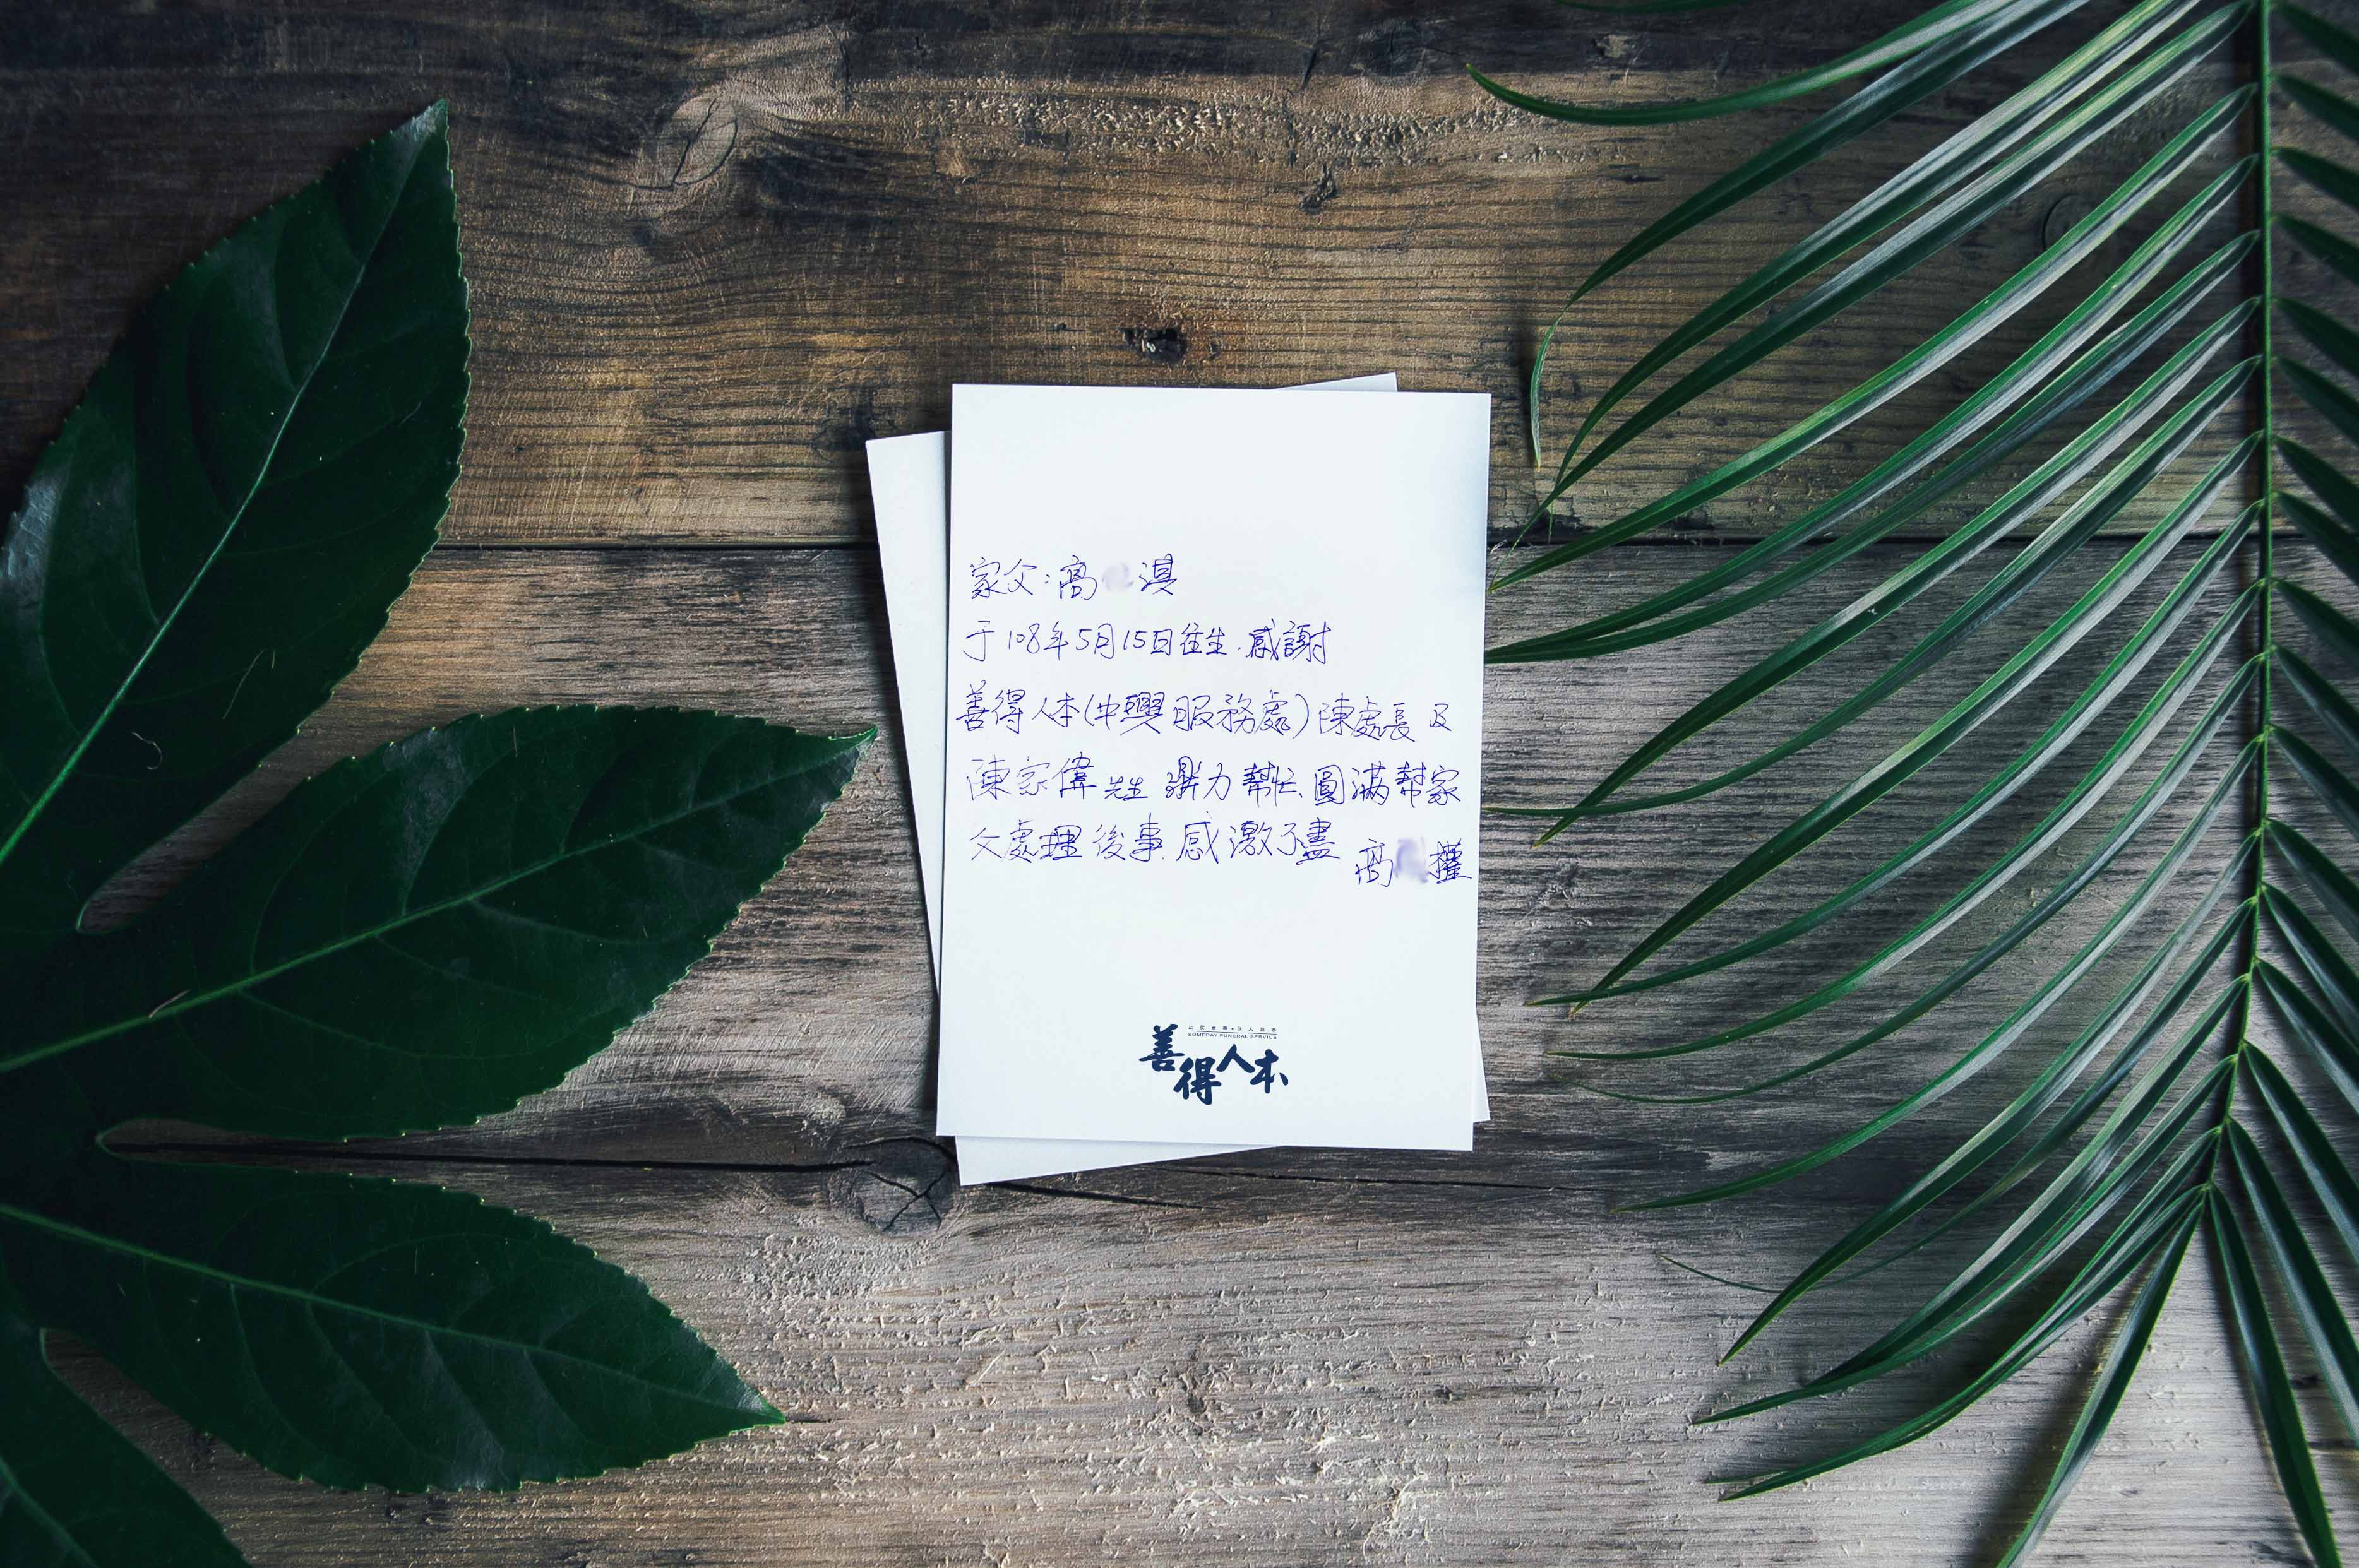 家父:高 淇
于108年5月15日往生.感謝
善得人本(中興服務處)陳處長及
陳家偉先生 鼎力幫忙、圓滿幫家
父處理後事.感激不盡
高 權
SOMEDAY FUNERAL SERVICE
善得人本